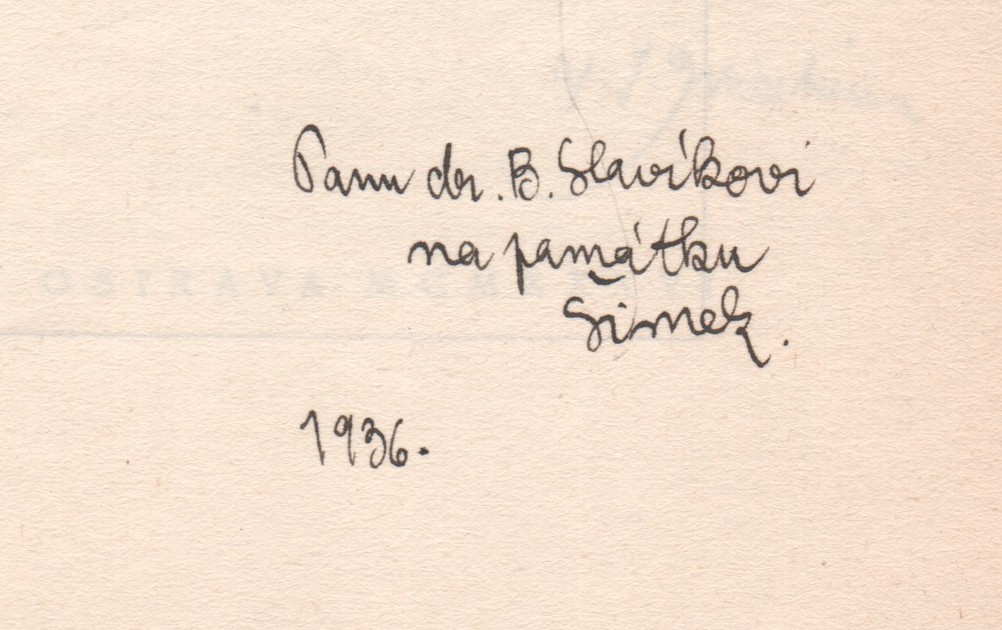 Panu dr. B. Slavíkovi
na památku
Šimek.
1936.
OSTRAVA